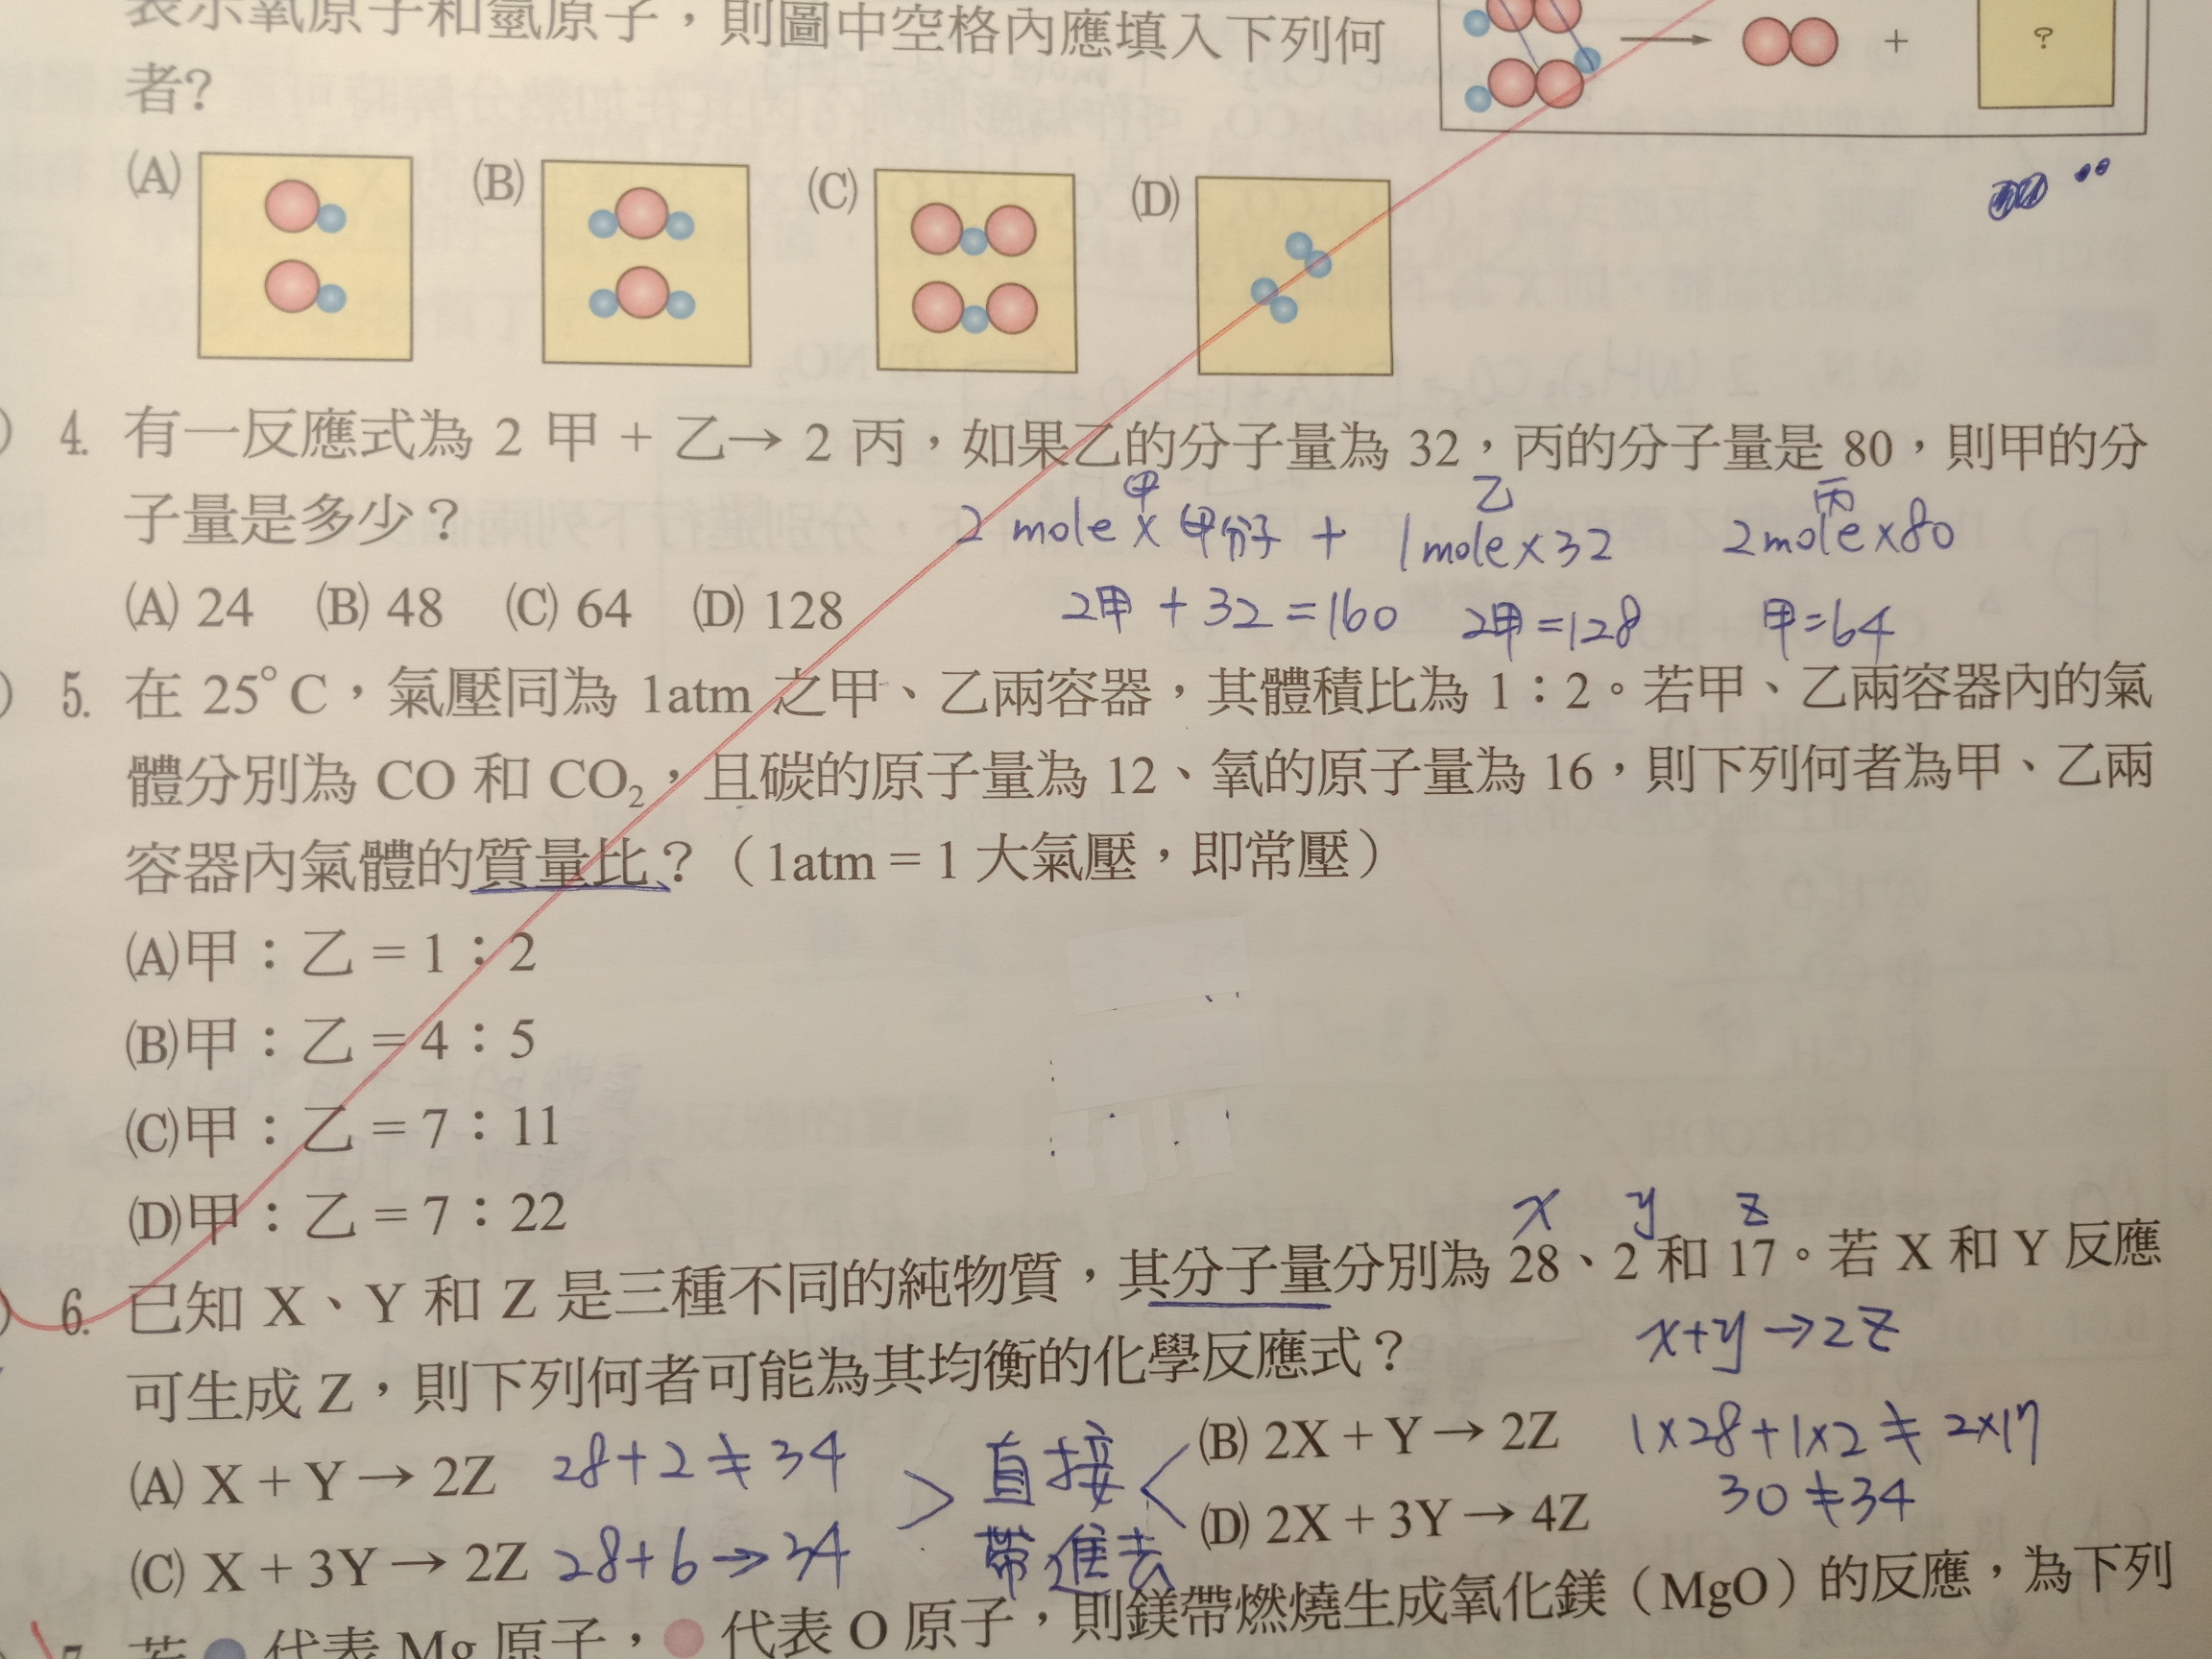 表示氧原子和氫原子，則圖中空格內應填入下列何
者？
+ ?
(A) (B) (C) (D)
4. 有一反應式為 2 甲 + 乙→ 2 丙，如果乙的分子量為 32，丙的分子量是 80，則甲的分
子量是多少？
甲 乙 丙
2 mole x 甲分子 + 1mole x 32 2mole x 80
(A) 24 (B) 48 (C) 64 (D) 128
2甲 + 32 = 160 2甲 = 128 甲 = 64
5. 在 25°C，氣壓同為 1atm 之甲、乙兩容器，其體積比為 1：2。若甲、乙兩容器內的氣
體分別為 CO 和 CO₂，且碳的原子量為 12、氧的原子量為 16，則下列何者為甲、乙兩
容器內氣體的質量比？（1atm = 1 大氣壓，即常壓）
(A)甲：乙 = 1：2
(B)甲：乙 = 4：5
(C)甲：乙 = 7：11
(D)甲：乙 = 7：22
x y z
6. 已知 X、Y 和 Z 是三種不同的純物質，其分子量分別為 28、2 和 17。若 X 和 Y 反應
可生成 Z，則下列何者可能為其均衡的化學反應式？
x+y→2z
(A) X + Y → 2Z 28+2≠34
(B) 2X + Y → 2Z 1x28+1x2≠2x17
30≠34
直接
帶進去
(C) X + 3Y → 2Z 28+6→34
(D) 2X + 3Y → 4Z
7. 若 代表 Mg 原子， 代表 O 原子，則鎂帶燃燒生成氧化鎂（MgO）的反應，為下列